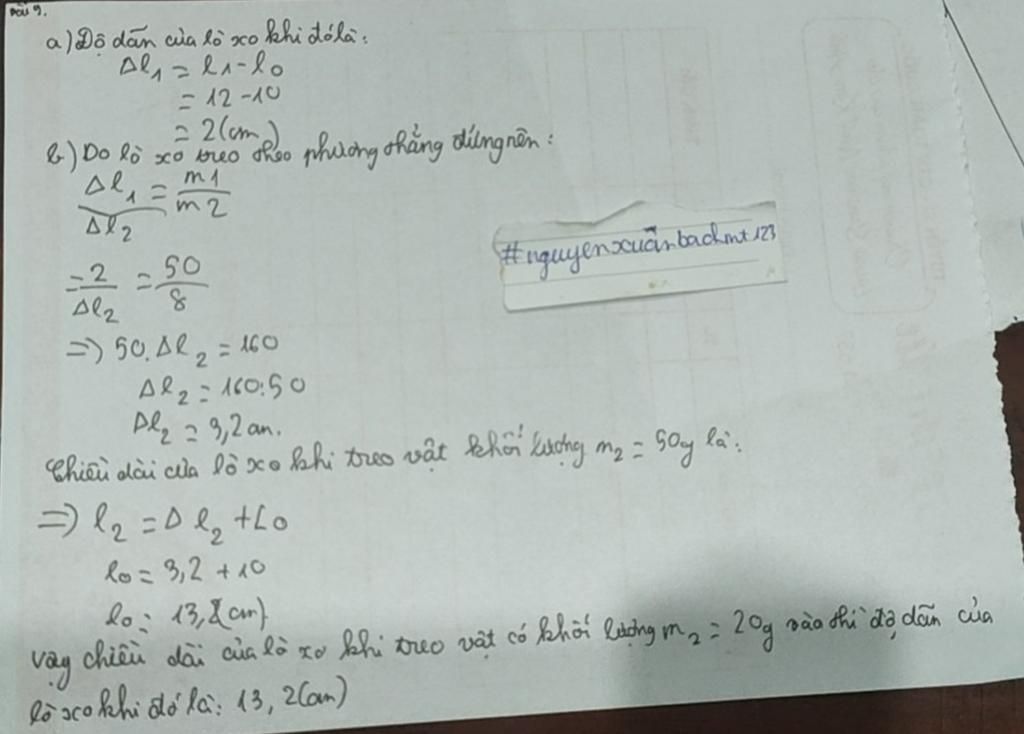 Bài 9.
a) Độ dãn của lò xo khi đó là:
Δl1 = l1 - l0
= 12 - 10
= 2 (cm)
b) Do lò xo treo theo phương thẳng đứng nên:
Δl1/Δl2 = m1/m2
#nguyenxuânbachmt123
= 2/Δl2 = 50/8
=> 50.Δl2 = 160
Δl2 = 160:50
Δl2 = 3,2cm.
Chiều dài của lò xo khi treo vật khối lượng m2 = 50g là:
=> l2 = Δl2 + L0
l0 = 3,2 + 10
l0 = 13,2 (cm)
Vậy chiều dài của lò xo khi treo vật có khối lượng m2 = 20g vào thì độ dãn của
lò xo khi đó là: 13,2 (cm)